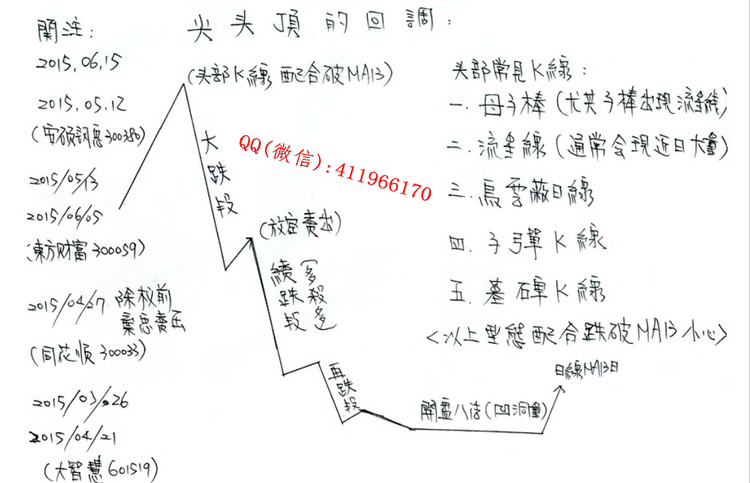 尖头頂的回調：
關注：
2015.06.15
2015.05.12
(安碩訊息300380)
2015/05/13
2015/06/05
(東方财富300059)
2015/04/27 除权前
(同花順300033)
2015/03/26
2015/04/21
(大智慧601519)
(头部K線配合破MA13)
大跌段
QQ(微信):411966170
(放空賣出)
續跌段
多殺多
再跌段
(凹洞量)
日線MA13日
头部常見K線：
一.母子棒(尤其子棒出現流星線)
二.流星線(通常会現近日大量)
三.烏雲蔽日線
四.子彈K線
五.墓碑K線
<以上型態配合跌破MA13小心>